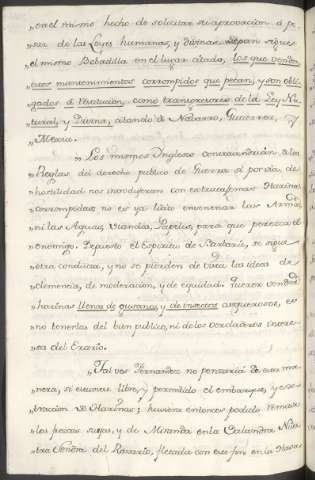 "en el mismo hecho de solicitar su aprovacion á pe-
"sar de las Leyes humanas, y divinas. Sepan sigue
"el mismo Bobadilla en el lugar citado, los que venden
"otros mantenimientos corrompidos que pecan, y son obli-
"gados á restitucion, como transgresores de la Ley Na-
"tural, y Divina, citando á Navarro, Gutierrez, y
"Mexia.
"Los mismos Ingleses contravendrian á las
"Reglas del derecho publico de Guerra si por via de
"hostilidad nos introdujeran con estratagema Harinas
"corrompidas: no es ya licito envenenar las Armas
"ni las Aguas, Viandas, Papeles, para que perezca el
"enemigo. Depuesto el Espiritu de Barbarie, se sigue
"otra conducta, y no se pierden de vista las ideas de
"clemencia, de moderacion, y de equidad. Querer vender
"harinas llenas de gusanos, y de insectos asquerosos, es
"no tenerlas del bien publico, ni de los verdaderos intere-
"ses del Erario.
"Tal vez Fernandez no pensaria de esta ma-
"nera, si estuviese libre, y permitido el embarque, y es-
"traccion de Harinas; huviera entonces podido remitir
"las pocas suyas, y de Miranda en la Balandra Nues-
"tra Señora del Rosario, fletada con este fin en la Havana